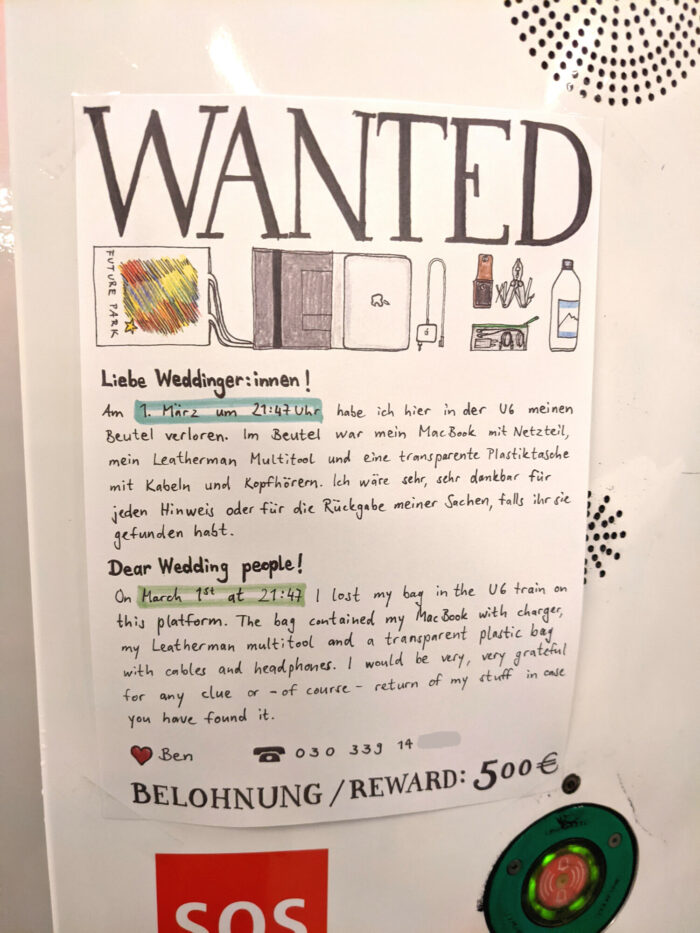 WANTED
FUTURE PARK
Liebe Weddinger:innen!
Am 1. März um 21:47 Uhr habe ich hier in der U6 meinen
Beutel verloren. Im Beutel war mein MacBook mit Netzteil,
mein Leatherman Multitool und eine transparente Plastiktasche
mit Kabeln und Kopfhörern. Ich wäre sehr, sehr dankbar für
jeden Hinweis oder für die Rückgabe meiner Sachen, falls ihr sie
gefunden habt.
Dear Wedding people!
On March 1st at 21:47 I lost my bag in the U6 train on
this platform. The bag contained my MacBook with charger,
my Leatherman multitool and a transparent plastic bag
with cables and headphones. I would be very, very grateful
for any clue or - of course - return of my stuff in case
you have found it.
Ben 030 339 14
BELOHNUNG / REWARD: 500€
SOS